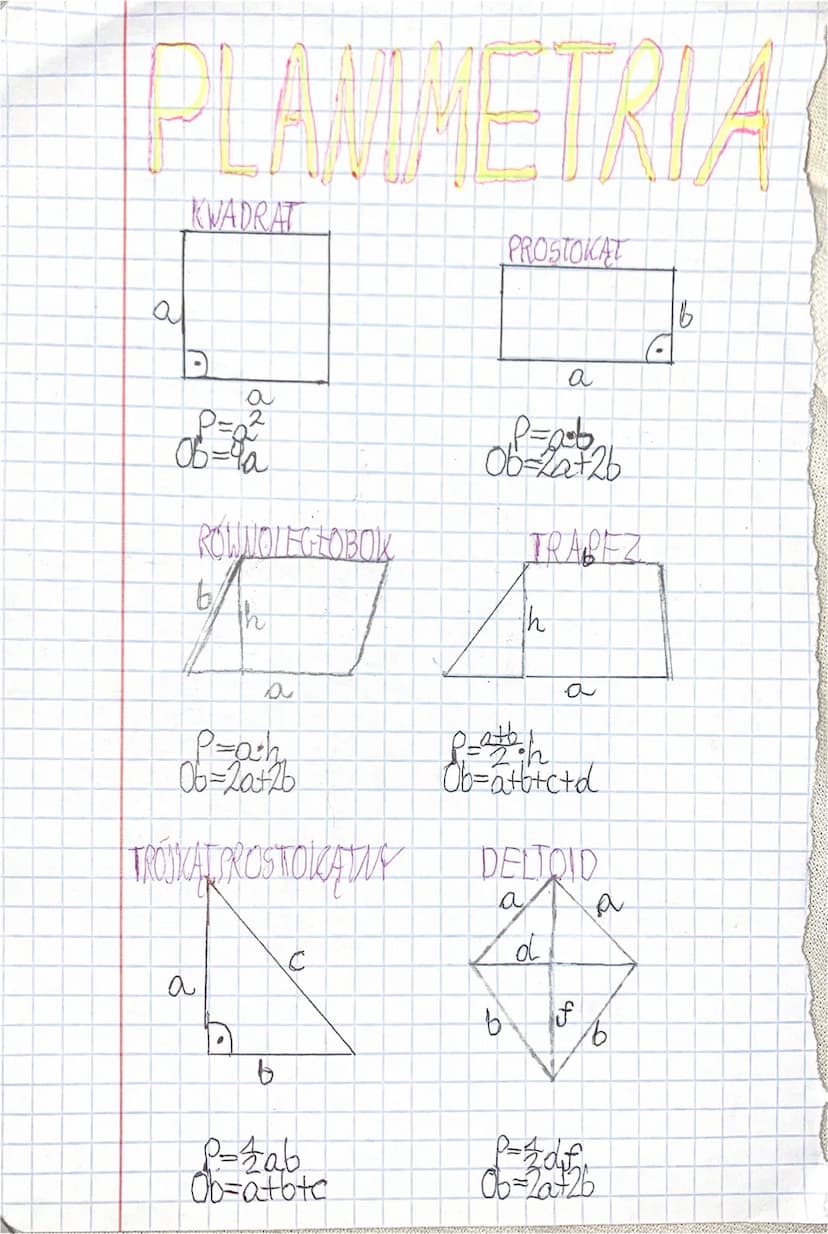 PLANIMETRIA
KWADRAT
a
a
P=a²
Ob=4a
PROSTOKĄT
b
a
P=a·b
Ob=2a+2b
RÓWNOLEGŁOBOK
b
h
a
P=a·h
Ob=2a+2b
TRAPEZ
b
h
a
P=a+b/2·h
Ob=a+b+c+d
TRÓJKĄT PROSTOKĄTNY
a
c
b
P=1/2ab
Ob=a+b+c
DELTOID
a a
d
b f b
P=1/2df
Ob=2a+2b